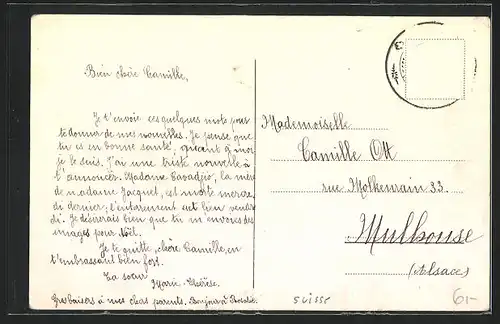 Bien chère Camille,
Je t'envoie ces quelques mots pour
te donner de mes nouvelles. Je pense que
tu es en bonne santé, quant à moi
je le suis. J'ai une triste nouvelle à
t'annoncer. Madame la mère
de madame Jacquet, est morte mercre
di dernier; l'enterrement eut lieu vendre
di. Je désirerais bien que tu m'envoies des
images pour Noël.
Je te quitte, chère Camille, en
t'embrassant bien fort.
Ta soeur
Marie-Thérèse.
Gros baisers à mes chers parents, Bonjour à
Mademoiselle
Camille Ott
rue Molkenrain 33.
Mulhouse
(Alsace)
suisse
6,-